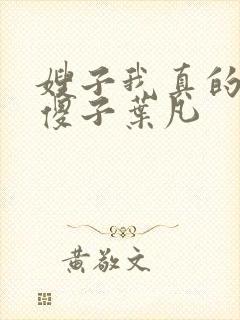 嫂子我真的
傻子葉凡
黃敬文